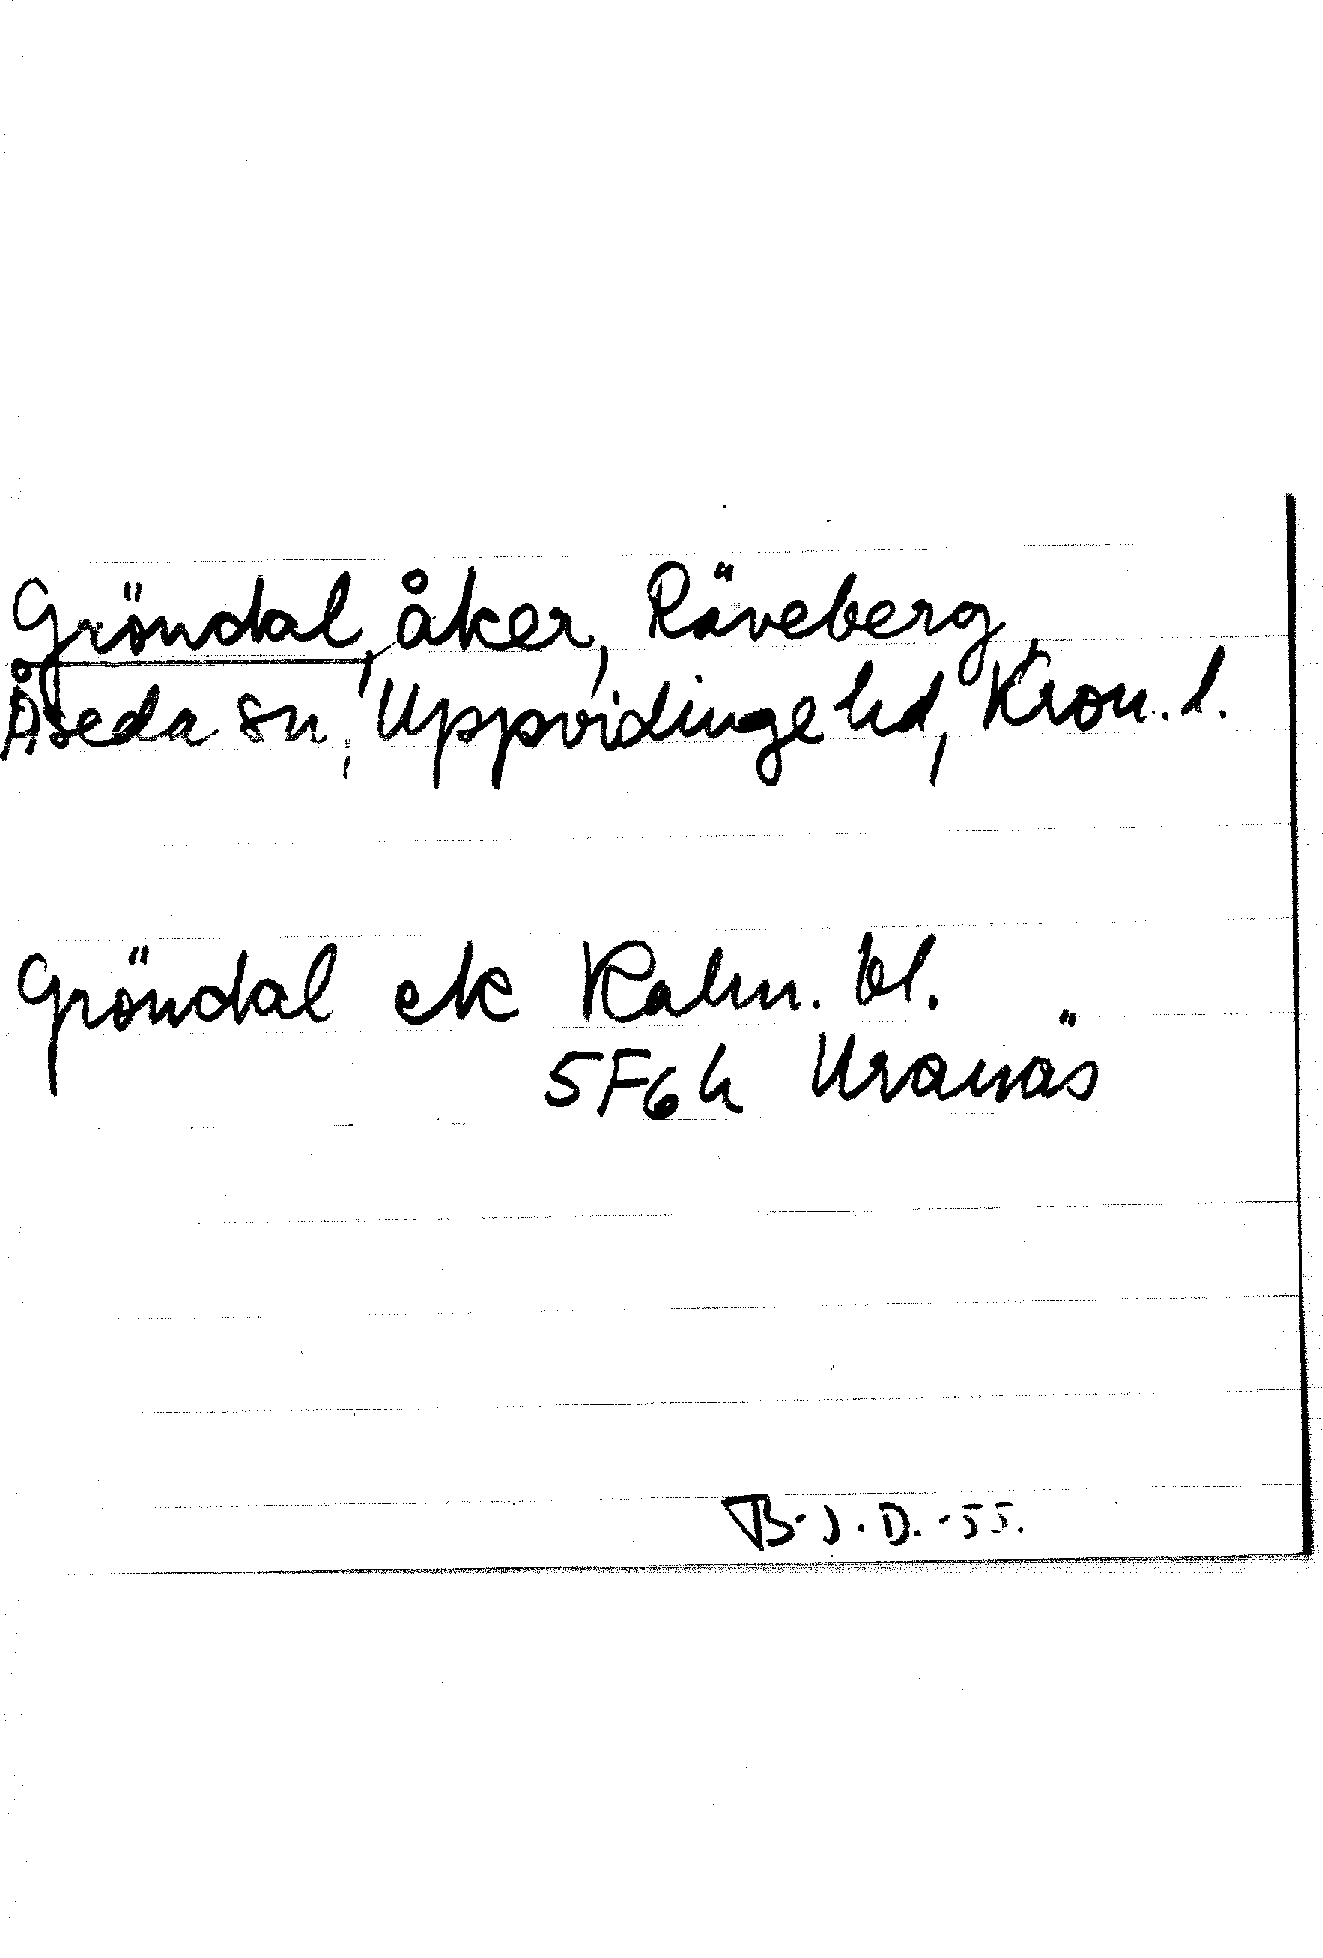 Gröndal, åker, Räveberg,
Åseda sn, Uppvidinge hd, Kron. l.
Gröndal ek Kalm. bl.
5F6h Uranäs
B.J.D. -55.